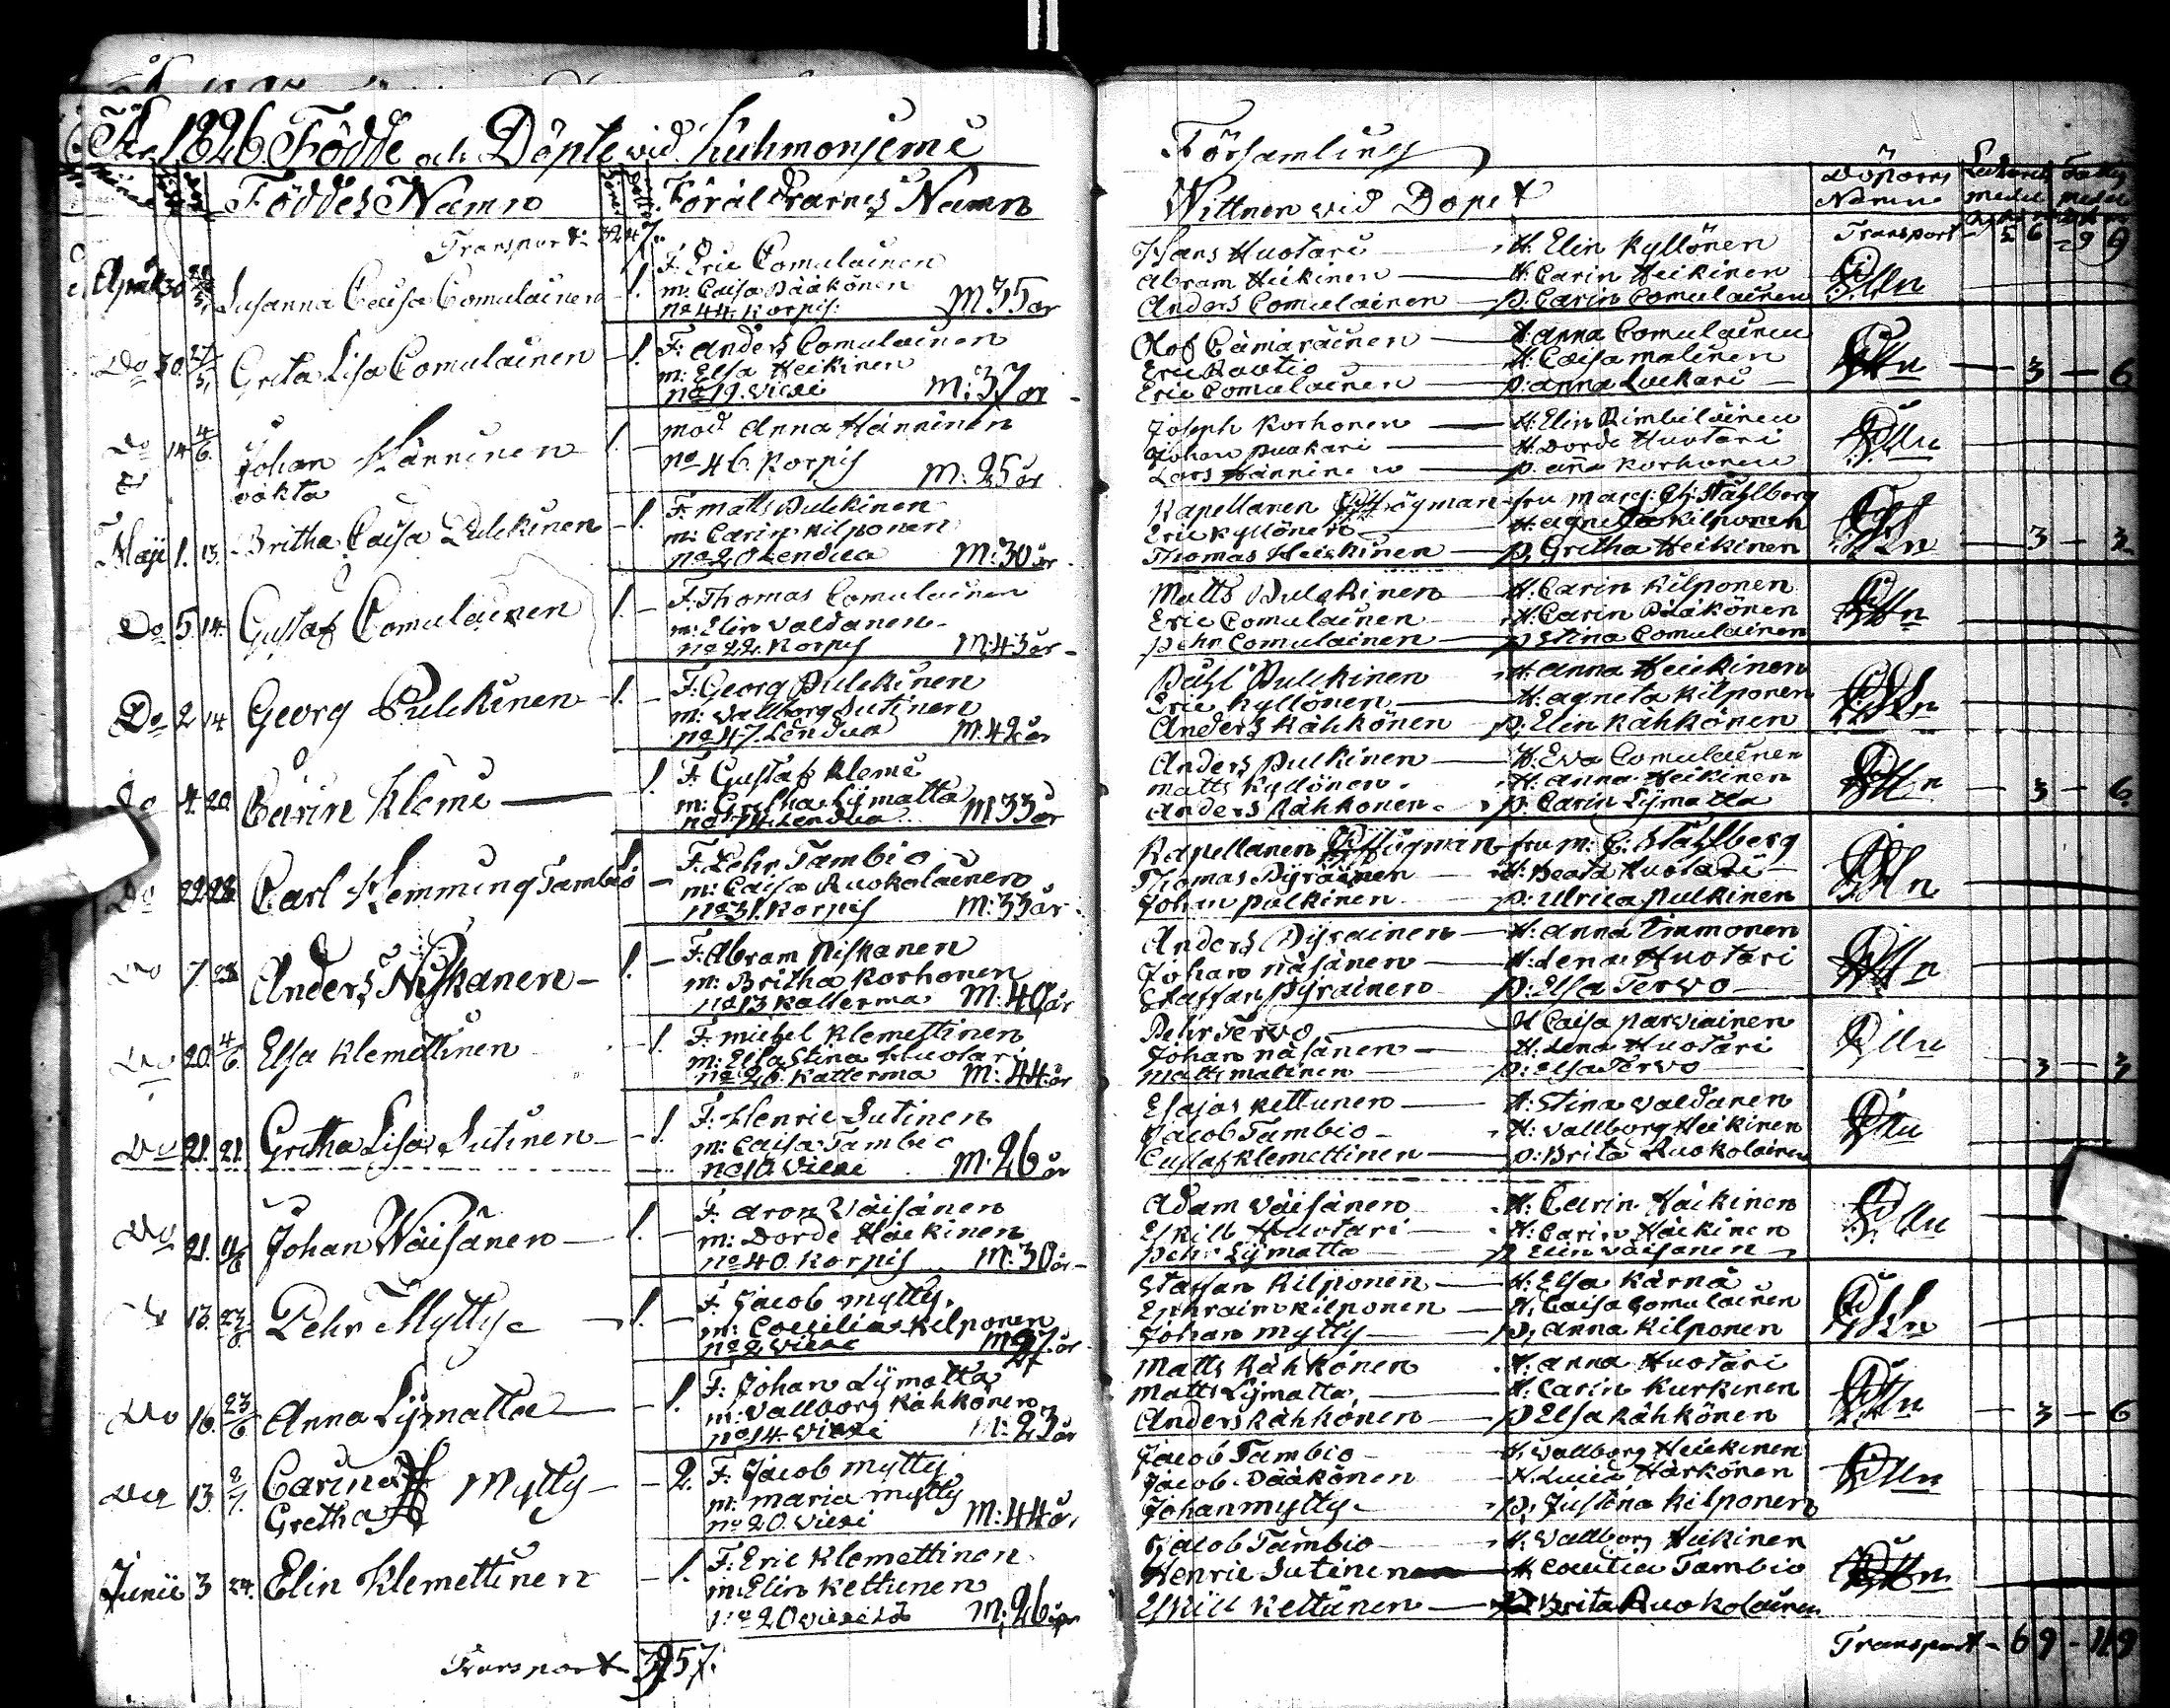 År 1826 Födde och Döpte vid Kuhmoniemi
Församling
Föddes Namn
Föräldrarnes Namn
Wittnen vid Dopet
Döparens Namn
Transport 32 47.
Transport
April 30 Susanna Caisa Comulainen 1.
F: Eric Comulainen
m: Caisa Pääkönen
no 44. Korpis: M 35 år
Hans Huotari H. Elin Kyllönen
Abram Heikinen H. Carin Heikinen
Anders Comulainen p. Carin Comulainen
Do 30. Greta Lisa Comulainen 1.
F: Anders Comulainen
m: Elsa Heikinen
no 19. Viexi M: 37 år
Olof Cämäräinen H. Anna Comulainen
Eric Rautio H. Caisa Malinen
Eric Comulainen p: Anna Luckari
3 6
Do 14 4/6. Johan Hänninen 1.
oäkta
mod Anna Hänninen
no 46. Korpis M: 25 år
Joseph Korhonen H. Elin Rimbiläinen
Johan Puakari H. Dorde Huotari
Lars Hänninen p. Aña Korhonen
Maji 1. 13. Britha Caisa Pulckinen 1.
F: Matts Pulckinen
m: Carin Kilponen
no 20 Lendua M: 30 år
Kapellanen Högman fru Marg: Stählberg
Eric Kyllönen H. Agneta Kilponen
Thomas Heickinen p. Gretha Heikinen
3 3
Do 5 14. Gustaf Comulainen 1.
F: Thomas Comulainen
m: Elin Valdanen
no 22. Korpis M: 43 år
Matts Pulckinen H. Carin Kilponen
Eric Comulainen H. Carin Pääkönen
Pehr Comulainen p Stina Comulainen
Do 2 14 Georg Pulckinen 1.
F: Georg Pulckinen
m: Vallborg Sutinen
no 47. Lendua M. 42 år
Påhl Pulckinen H. Anna Heickinen
Eric Kyllönen H. Agneta Kilponen
Anders Kähkönen p: Elin Kähkönen
Do 4 20. Carin Klemi 1.
F: Gustaf Klemi
m: Gretha Lÿmatta
no 14. Lendua M 33 år
Anders Pulkinen H. Eva Comulainen
Matts Kyllönen H. Anna Heikinen
Anders Kähkönen p: Carin Lÿmatta
3 6
Do 22. 28. Carl Hemming Tambio 1.
F: Pehr Tambio
m: Caisa Ruokolainen
no 31. Korpis M: 33 år
Kapellanen Högman fru M: C. Stählberg
Thomas Pyräinen H: Beata Huotari
Johan Pulkinen p: Ulrica Pulkinen
Do 7. 28 Anders Niskanen 1.
F: Abram Niskanen
m: Britha Korhonen
no 13 Katterma M: 40 år
Anders Pyräinen H. Anna Timmonen
Johan Näsänen H. Lena Huotari
Staffan Pyräinen p: Elsa Tervo
Do 20. 4/6. Elsa Klemettinen 1.
F: Michel Klemettinen
m: Eila Stina Huotari
no 26 Katterma M: 44 år
Pehr Tervo H Caisa Parviainen
Johan Näsänen H. Lena Huotari
Matts Matinen p: Elsa Tervo
3 3
Do 21. 21. Gretha Lisa Sutinen 1.
F: Henric Sutinen
m: Caisa Tambio
no 10. Viexi M. 26 år
Esajas Kettunen H. Stina Valdanen
Jacob Tambio H: Vallborg Heikinen
Gustaf Klemettinen p: Brita Ruokolainen
Do 21. 11/6 Johan Wäisänen 1.
F: Aron Väisänen
m: Dorde Häckinen
no 40. Korpis M: 30 år
Adam Väisänen H. Carin Häckinen
Eskill Huotari H: Carin Häckinen
Pehr Lÿmatta p Elin Väisänen
Do 13. 23/6. Pehr Mytty 1.
F: Jacob Mytty
m: Coecilia Kilponen
no 2. Viexi
Staffan Kilponen H. Elsa Kärnä
Ephraim Kilponen H: Caisa Comulainen
Johan Mytty p: Anna Kilponen
Do 16. 23/6 Anna Lÿmatta 1.
F: Johan Lÿmatta
m: Vallborg Kähkönen
no 14. Viexi M: 23 år
Matts Kähkönen H. Anna Huotari
Matts Lÿmatta H. Carin Kurkinen
Anders Kähkönen p Elsa Kähkönen
3 6
Do 13. 2/7. Carin Mytty 2.
Gretha
F: Jacob Mytty
m: Maria Mytty
no 20. Viexi M: 44 år
Jacob Tambio H. Vallborg Heickinen
Jacob Pääkönen H. Lucia Härkönen
Johan Mytty p: Justina Kilponen
Junii 3 24. Elin Klemettinen 1.
F: Eric Klemettinen
m: Elin Kettunen
no 20 M: 26 år
Jacob Tambio H. Vallborg Heikinen
Henric Sutinen H Tambio
Eskill Kettunen p Brita Ruokolainen
Transport 39 57.
Transport 69 119